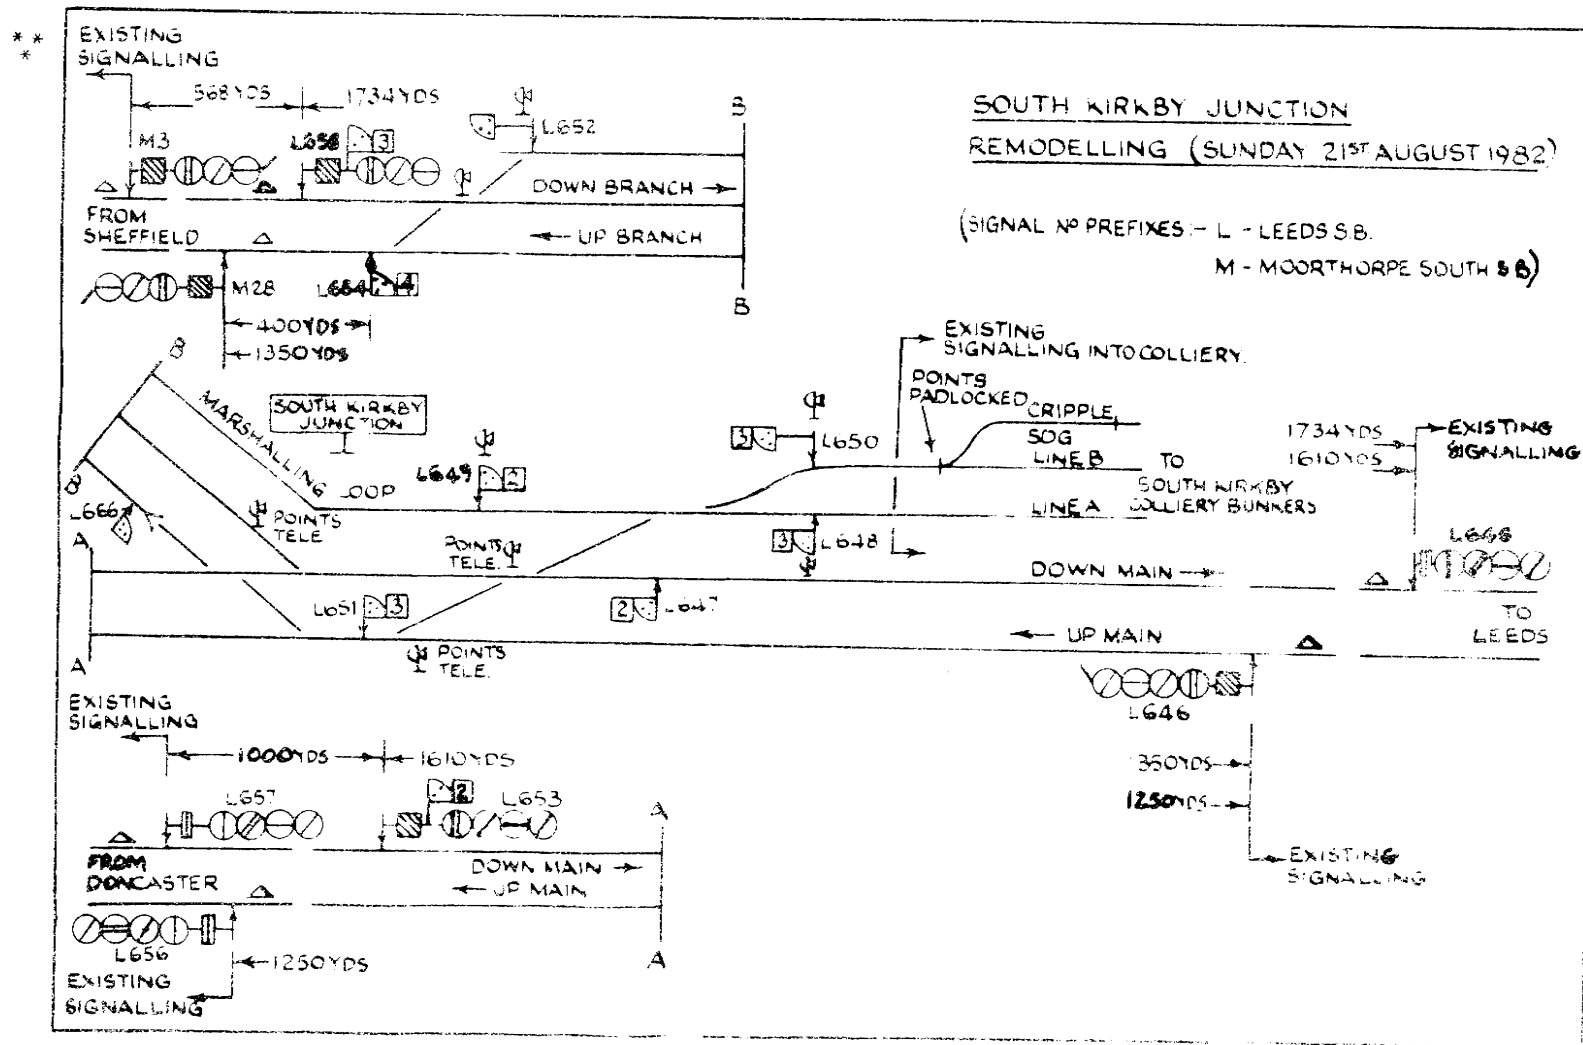 * *
*
EXISTING
SIGNALLING
568 YDS
1734 YDS
B
L652
M3
3
DOWN BRANCH →
FROM
SHEFFIELD
← UP BRANCH
M28
4
B
400 YDS
1350 YDS
SOUTH KIRKBY JUNCTION
REMODELLING (SUNDAY 21ST AUGUST 1982)
(SIGNAL Nº PREFIXES:- L - LEEDS S.B.
M - MOORTHORPE SOUTH S B)
EXISTING
SIGNALLING INTO COLLIERY.
POINTS
PADLOCKED
CRIPPLE
LINE B
TO
SOUTH KIRKBY
COLLIERY BUNKERS
LINE A
B
MARSHALLING LOOP
SOUTH KIRKBY
JUNCTION
L649
2
3
L650
1734 YDS
1610 YDS
EXISTING
SIGNALLING
B
POINTS
TELE
POINTS
TELE.
3
L648
DOWN MAIN →
A
L651
3
2
L647
← UP MAIN
TO
LEEDS
A
POINTS
TELE.
L646
1250 YDS
EXISTING
SIGNALLING
EXISTING
SIGNALLING
1000 YDS
1610 YDS
L657
2
L653
A
FROM
DONCASTER
DOWN MAIN →
← UP MAIN
L656
1250 YDS
A
EXISTING
SIGNALLING